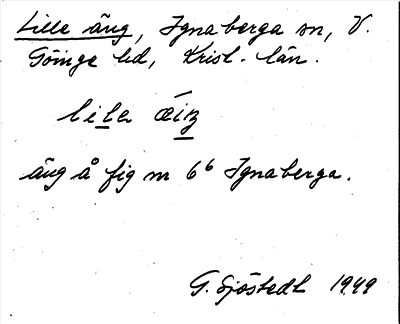 Lille äng, Ignaberga sn, V.
Göinge hd, Krist. län.
äng å fig nr 6⁶ Ignaberga.
G. Sjöstedt 1949